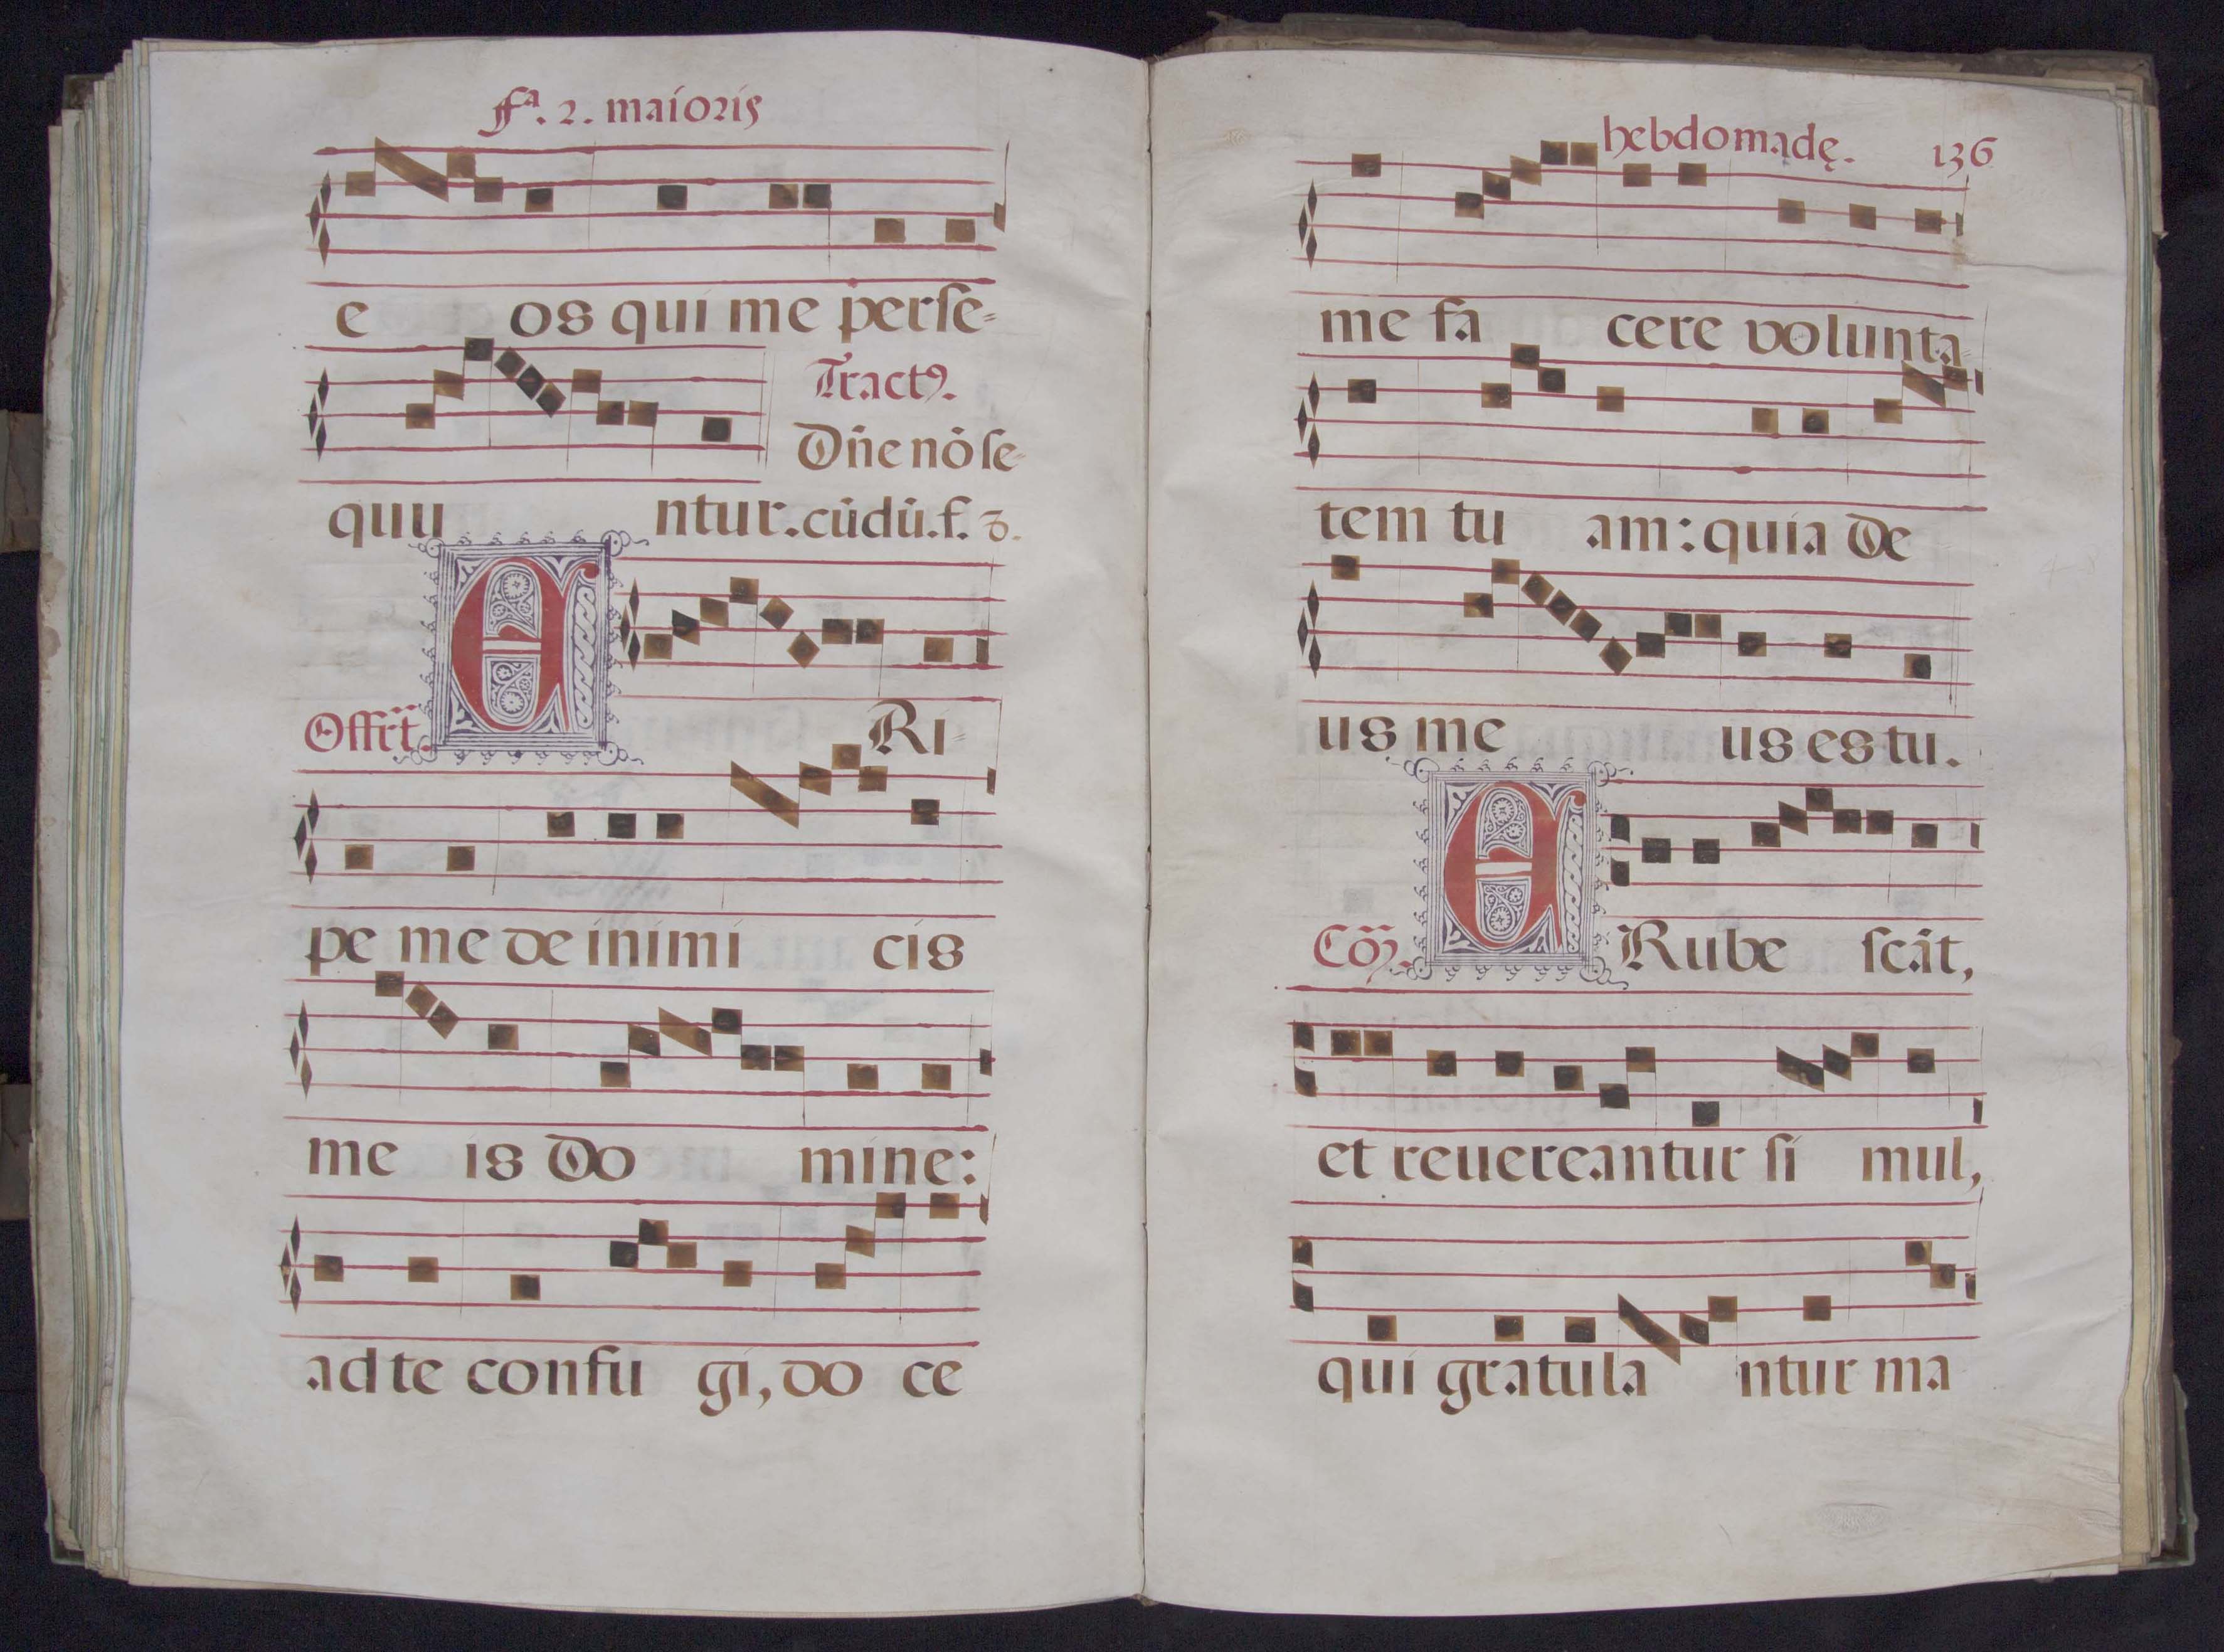 fª. 2. maioris
e os qui me perse=
Tractꝰ.
Dñe nõ se-
quu ntur. cũdũ. f. 3.
Offr̃t. E RI-
pe me de inimi cis
me is Do mine:
ad te confu gi, do ce
hebdomadę. 136
me fa cere volunta-
tem tu am: quia De
us me us es tu.
Cõ. E Rube scãt,
et reuereantur si mul,
qui gratula ntur ma